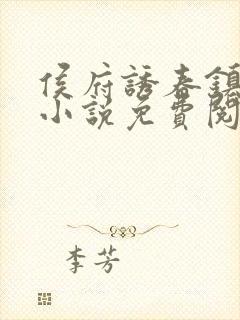 侯府誘春鎮
小說免費閱
李芳